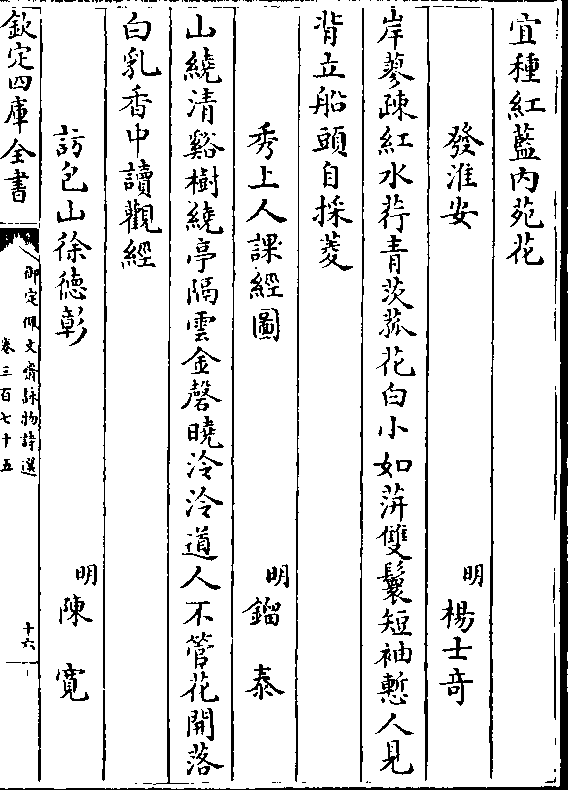 宜種紅藍内苑花
發淮安 明 楊士竒
岸蓼疎紅水荇青茨菰花白小如蓱雙鬟短袖慙人見
背立船頭自採菱
秀上人課經圖 明 鎦泰
山繞清谿樹繞亭隔雲金磬曉泠泠道人不管花開落
白乳香中讀觀經
訪包山徐德彰 明 陳寛
欽定四庫全書
御定佩文齋詠物詩選
卷三百七十五
十六